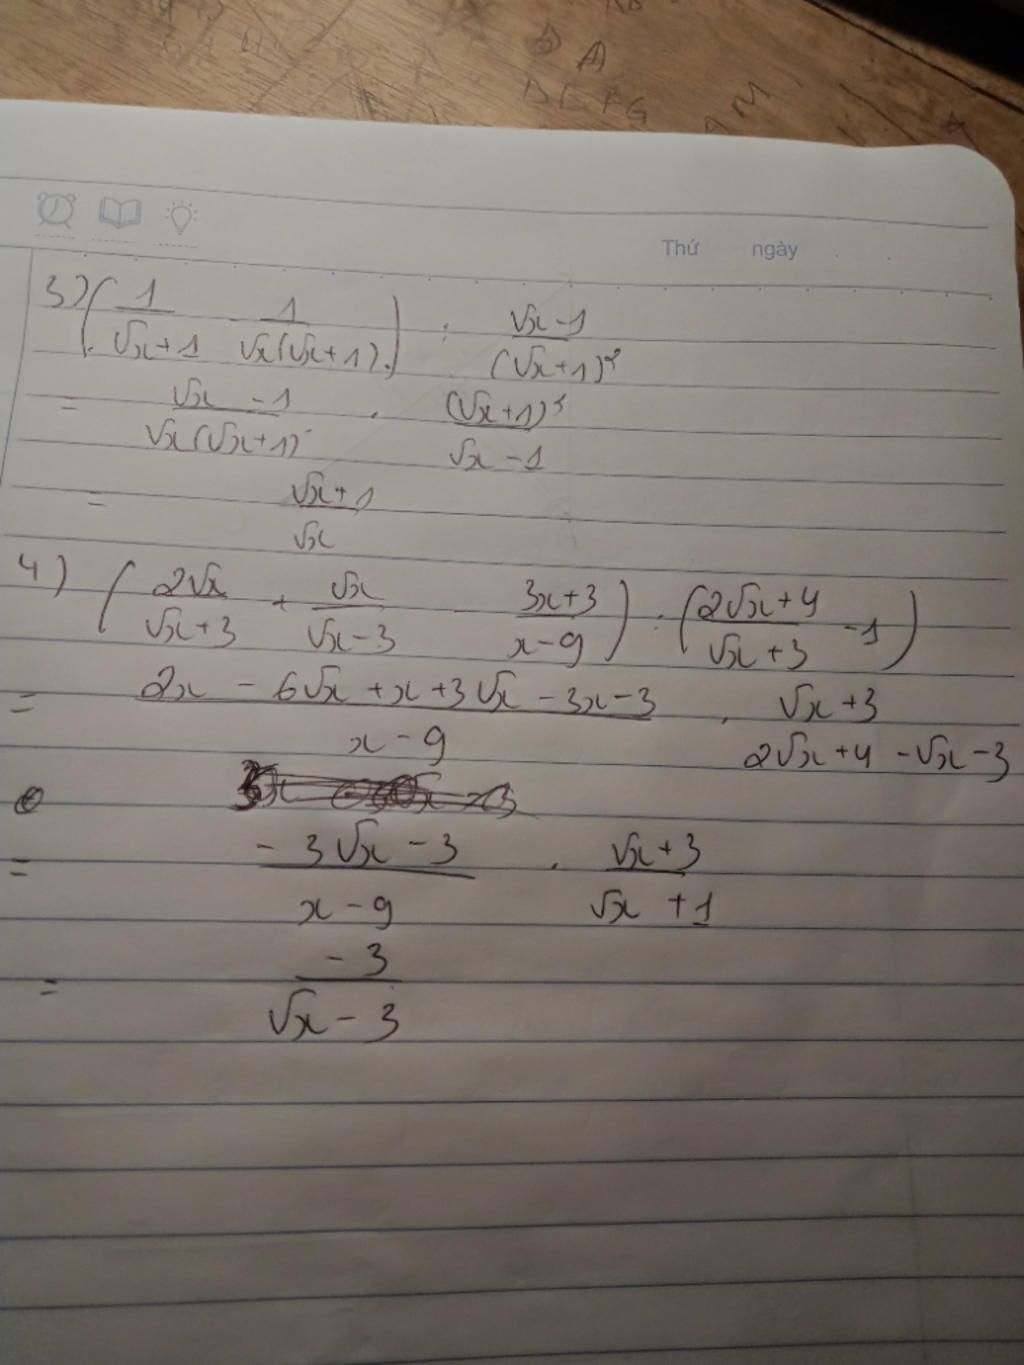 Thứ ngày
3) ( 1/(√x+1) - 1/(√x(√x+1)) ) : (√x-1)/(√x+1)²
= (√x-1)/(√x(√x+1)) . (√x+1)²/(√x-1)
= (√x+1)/√x
4) ( 2√x/(√x+3) + √x/(√x-3) - (3x+3)/(x-9) ) : ( (2√x+4)/(√x+3) - 1 )
= (2x - 6√x + x + 3√x - 3x - 3)/(x-9) . (√x+3)/(2√x+4-√x-3)
= (-3√x-3)/(x-9) . (√x+3)/(√x+1)
= -3/(√x-3)